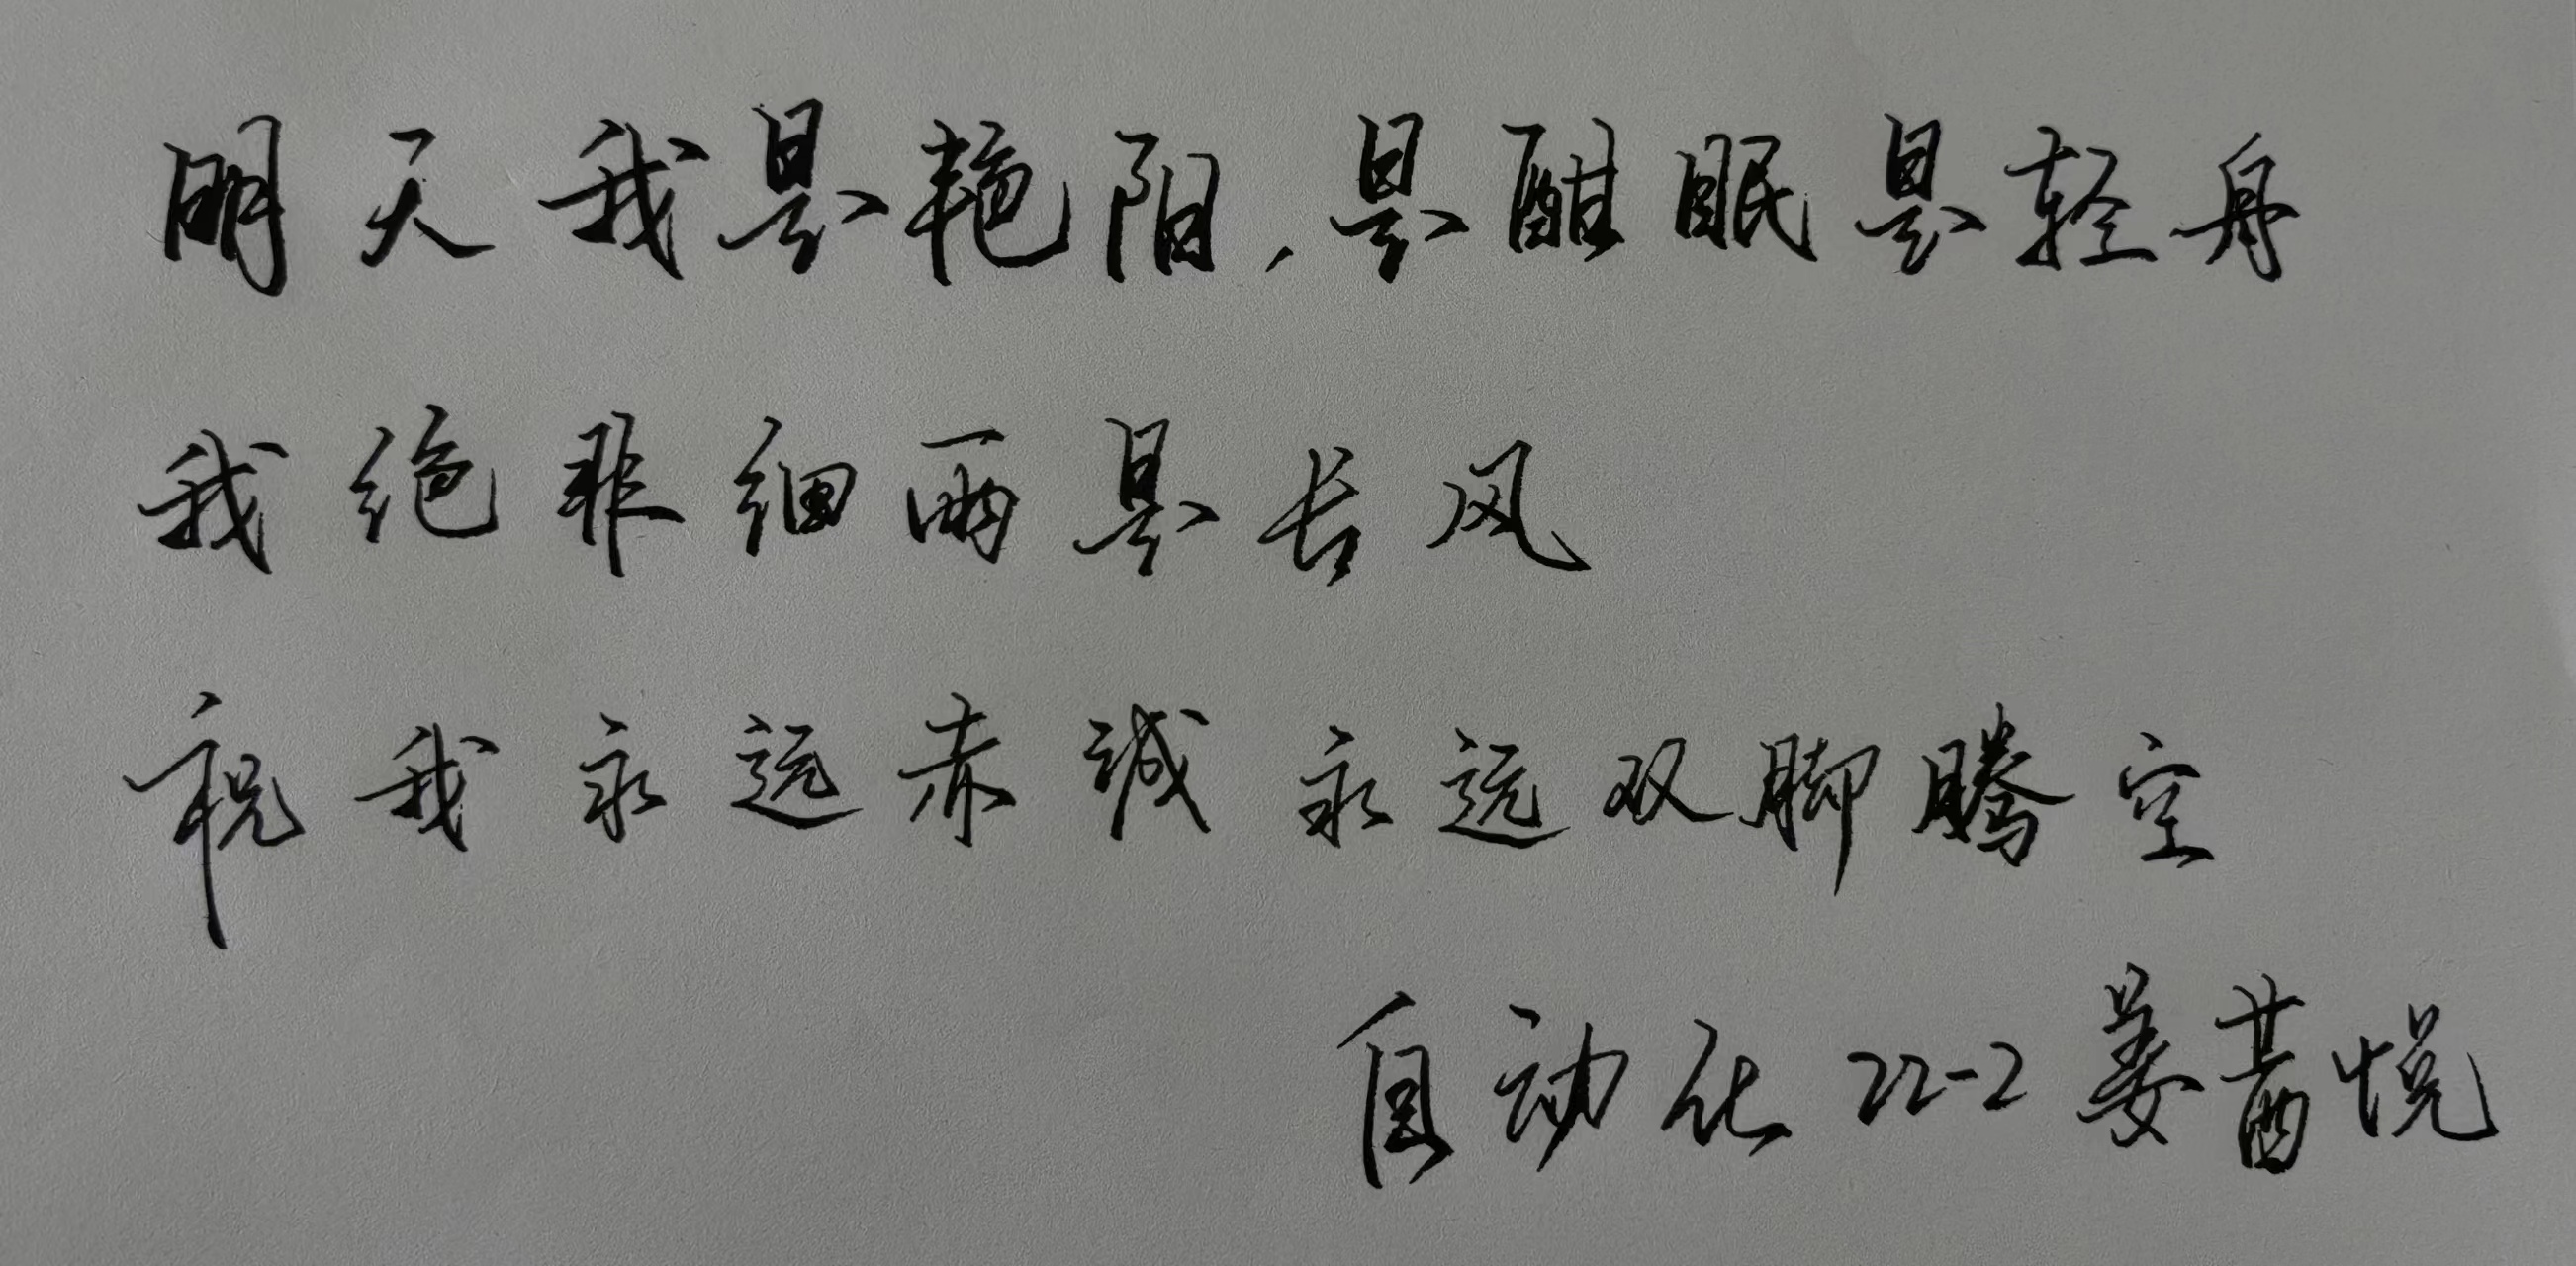 明天我是艳阳，是酣眠是轻舟
我绝非细雨是长风
祝我永远赤诚 永远双脚腾空
自动化22-2 姜茜悦